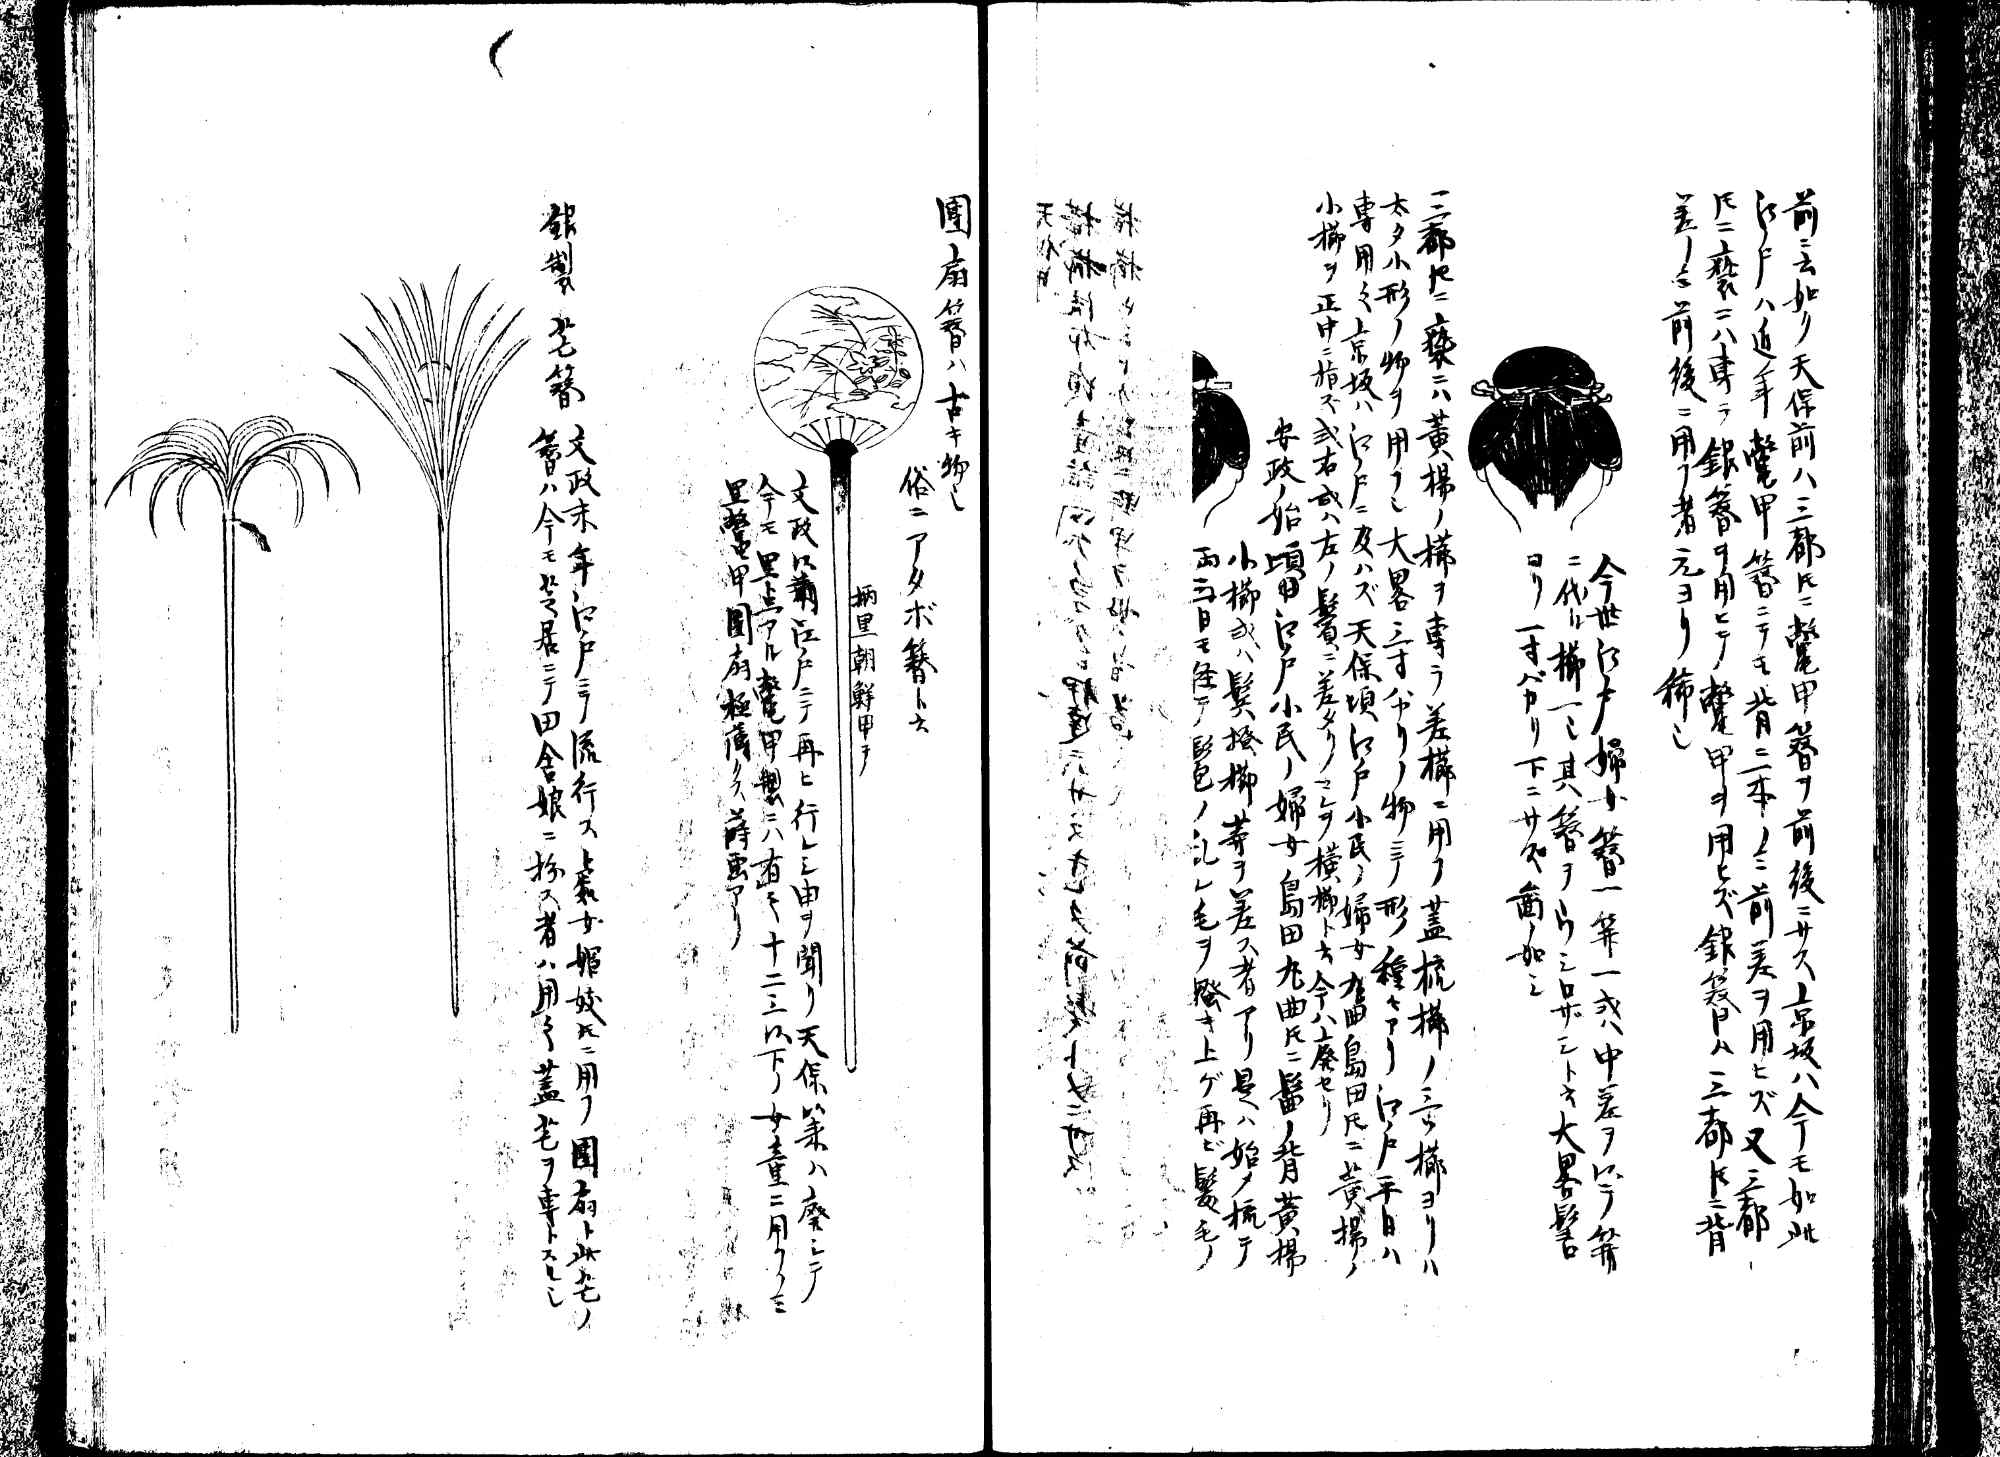 前ニ云如ク天保前ハ三都トモニ鼈甲簪ヲ前後ニサス京坂ハ今モ如此
江戸ハ近年鼈甲簪ニテモ背二本ノミ前差ヲ用ヒズ又三都
トモニ褻ニハ専ラ銀簪ヲ用ヒテ鼈甲ヲ用ヒズ銀簪ハ三都トモニ背
差ノミ前後ニ用フ者元ヨリ稀也
今世江戸婦女簪一笄一或ハ中差ヲ以テ笄
ニ代ル櫛一也其簪ヲウシロザシト云大畧髷
ヨリ一寸バカリ下ニサス圖ノ如シ
三都トモニ褻ニハ黄楊ノ櫛ヲ専ラ差櫛ニ用フ蓋梳櫛ノ三ツ櫛ヨリハ
太タ小形ノ物ヲ用フ也大畧三寸バカリノ物ニテ形種々アリ江戸平日ハ
専用之京坂ハ江戸ニ及ハズ天保頃江戸小民ノ婦女丸曲島田トモニ黄楊ノ
小櫛ヲ正中ニ指ズ或右或ハ左ノ鬢ニ差タリ之ヲ横櫛ト云今ハ廃セリ
安政ノ始頃江戸小民ノ婦女島田丸曲トモニ髷ノ背黄楊
小櫛或ハ鬢掻櫛等ヲ差ス者アリ是ハ始メ梳テ
両三日モ経テ髱ノ乱レ毛ヲ掻キ上ゲ再ビ髪毛ノ
團扇簪ハ古キ物也
俗ニアタボ簪ト云
柄黒朝鮮甲ヲ
文政以前江戸ニテ再ヒ行レシ由ヲ聞リ天保以来ハ廃シテ
今モ黒点アル鼈甲製ニハ有之十二三以下ノ女童ニ用フノミ
黒鼈甲團扇極薄クス蒔画アリ
銀製芒簪
文政末年江戸ニテ流行ス處女媚妓トモニ用フ團扇ト此芒ノ
簪ハ今モ芝居ニテ田舎娘ニ扮ス者ハ用之蓋芒ヲ専トスル也